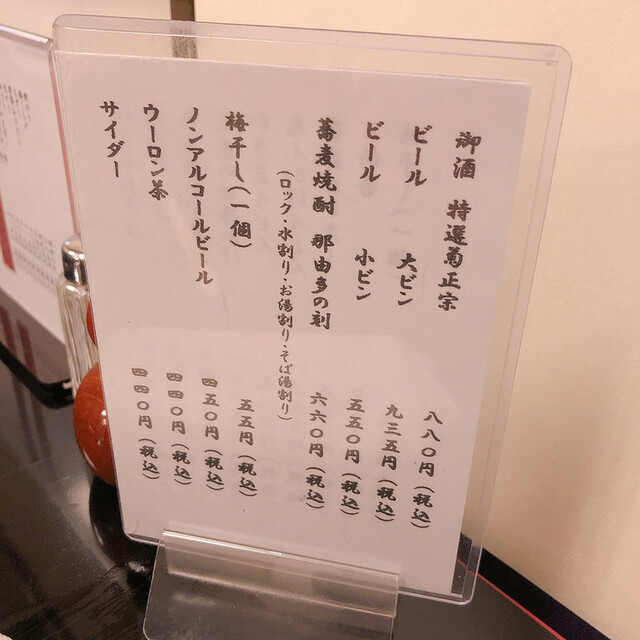 御酒 特選菊正宗 八八〇円(税込)
ビール 大ビン 九三五円(税込)
ビール 小ビン 五五〇円(税込)
蕎麦焼酎 那由多の刻 六六〇円(税込)
(ロック・水割り・お湯割り・そば湯割り)
梅干し(一個) 五五円(税込)
ノンアルコールビール 四五〇円(税込)
ウーロン茶 四四〇円(税込)
サイダー 四四〇円(税込)